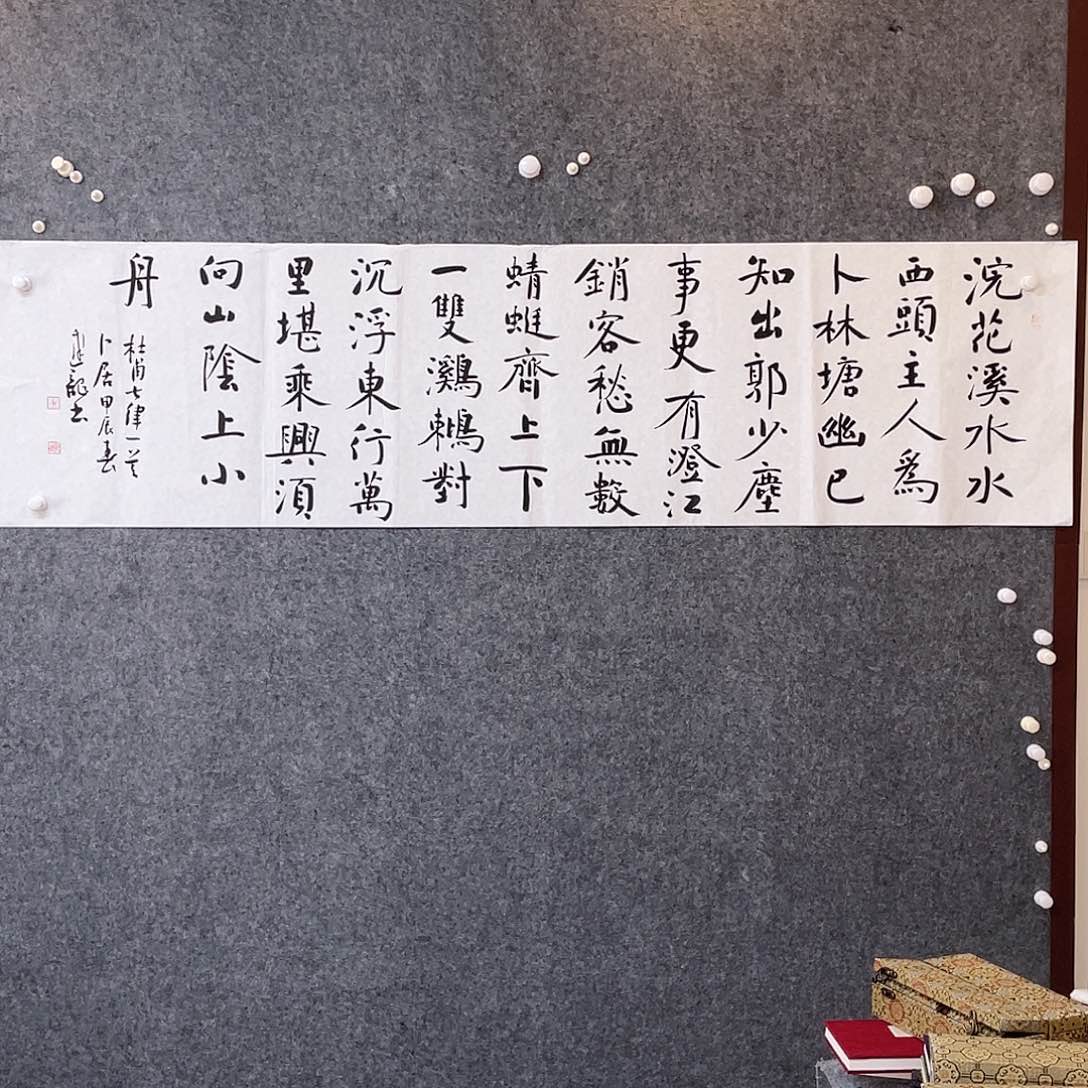 浣花溪水水
西頭主人爲
卜林塘幽已
知出郭少塵
事更有澄江
銷客愁無數
蜻蜓齊上下
一雙鸂鶒對
沉浮東行萬
里堪乘興須
向山陰上小
舟
杜甫七律一首
卜居甲辰春
建龍書